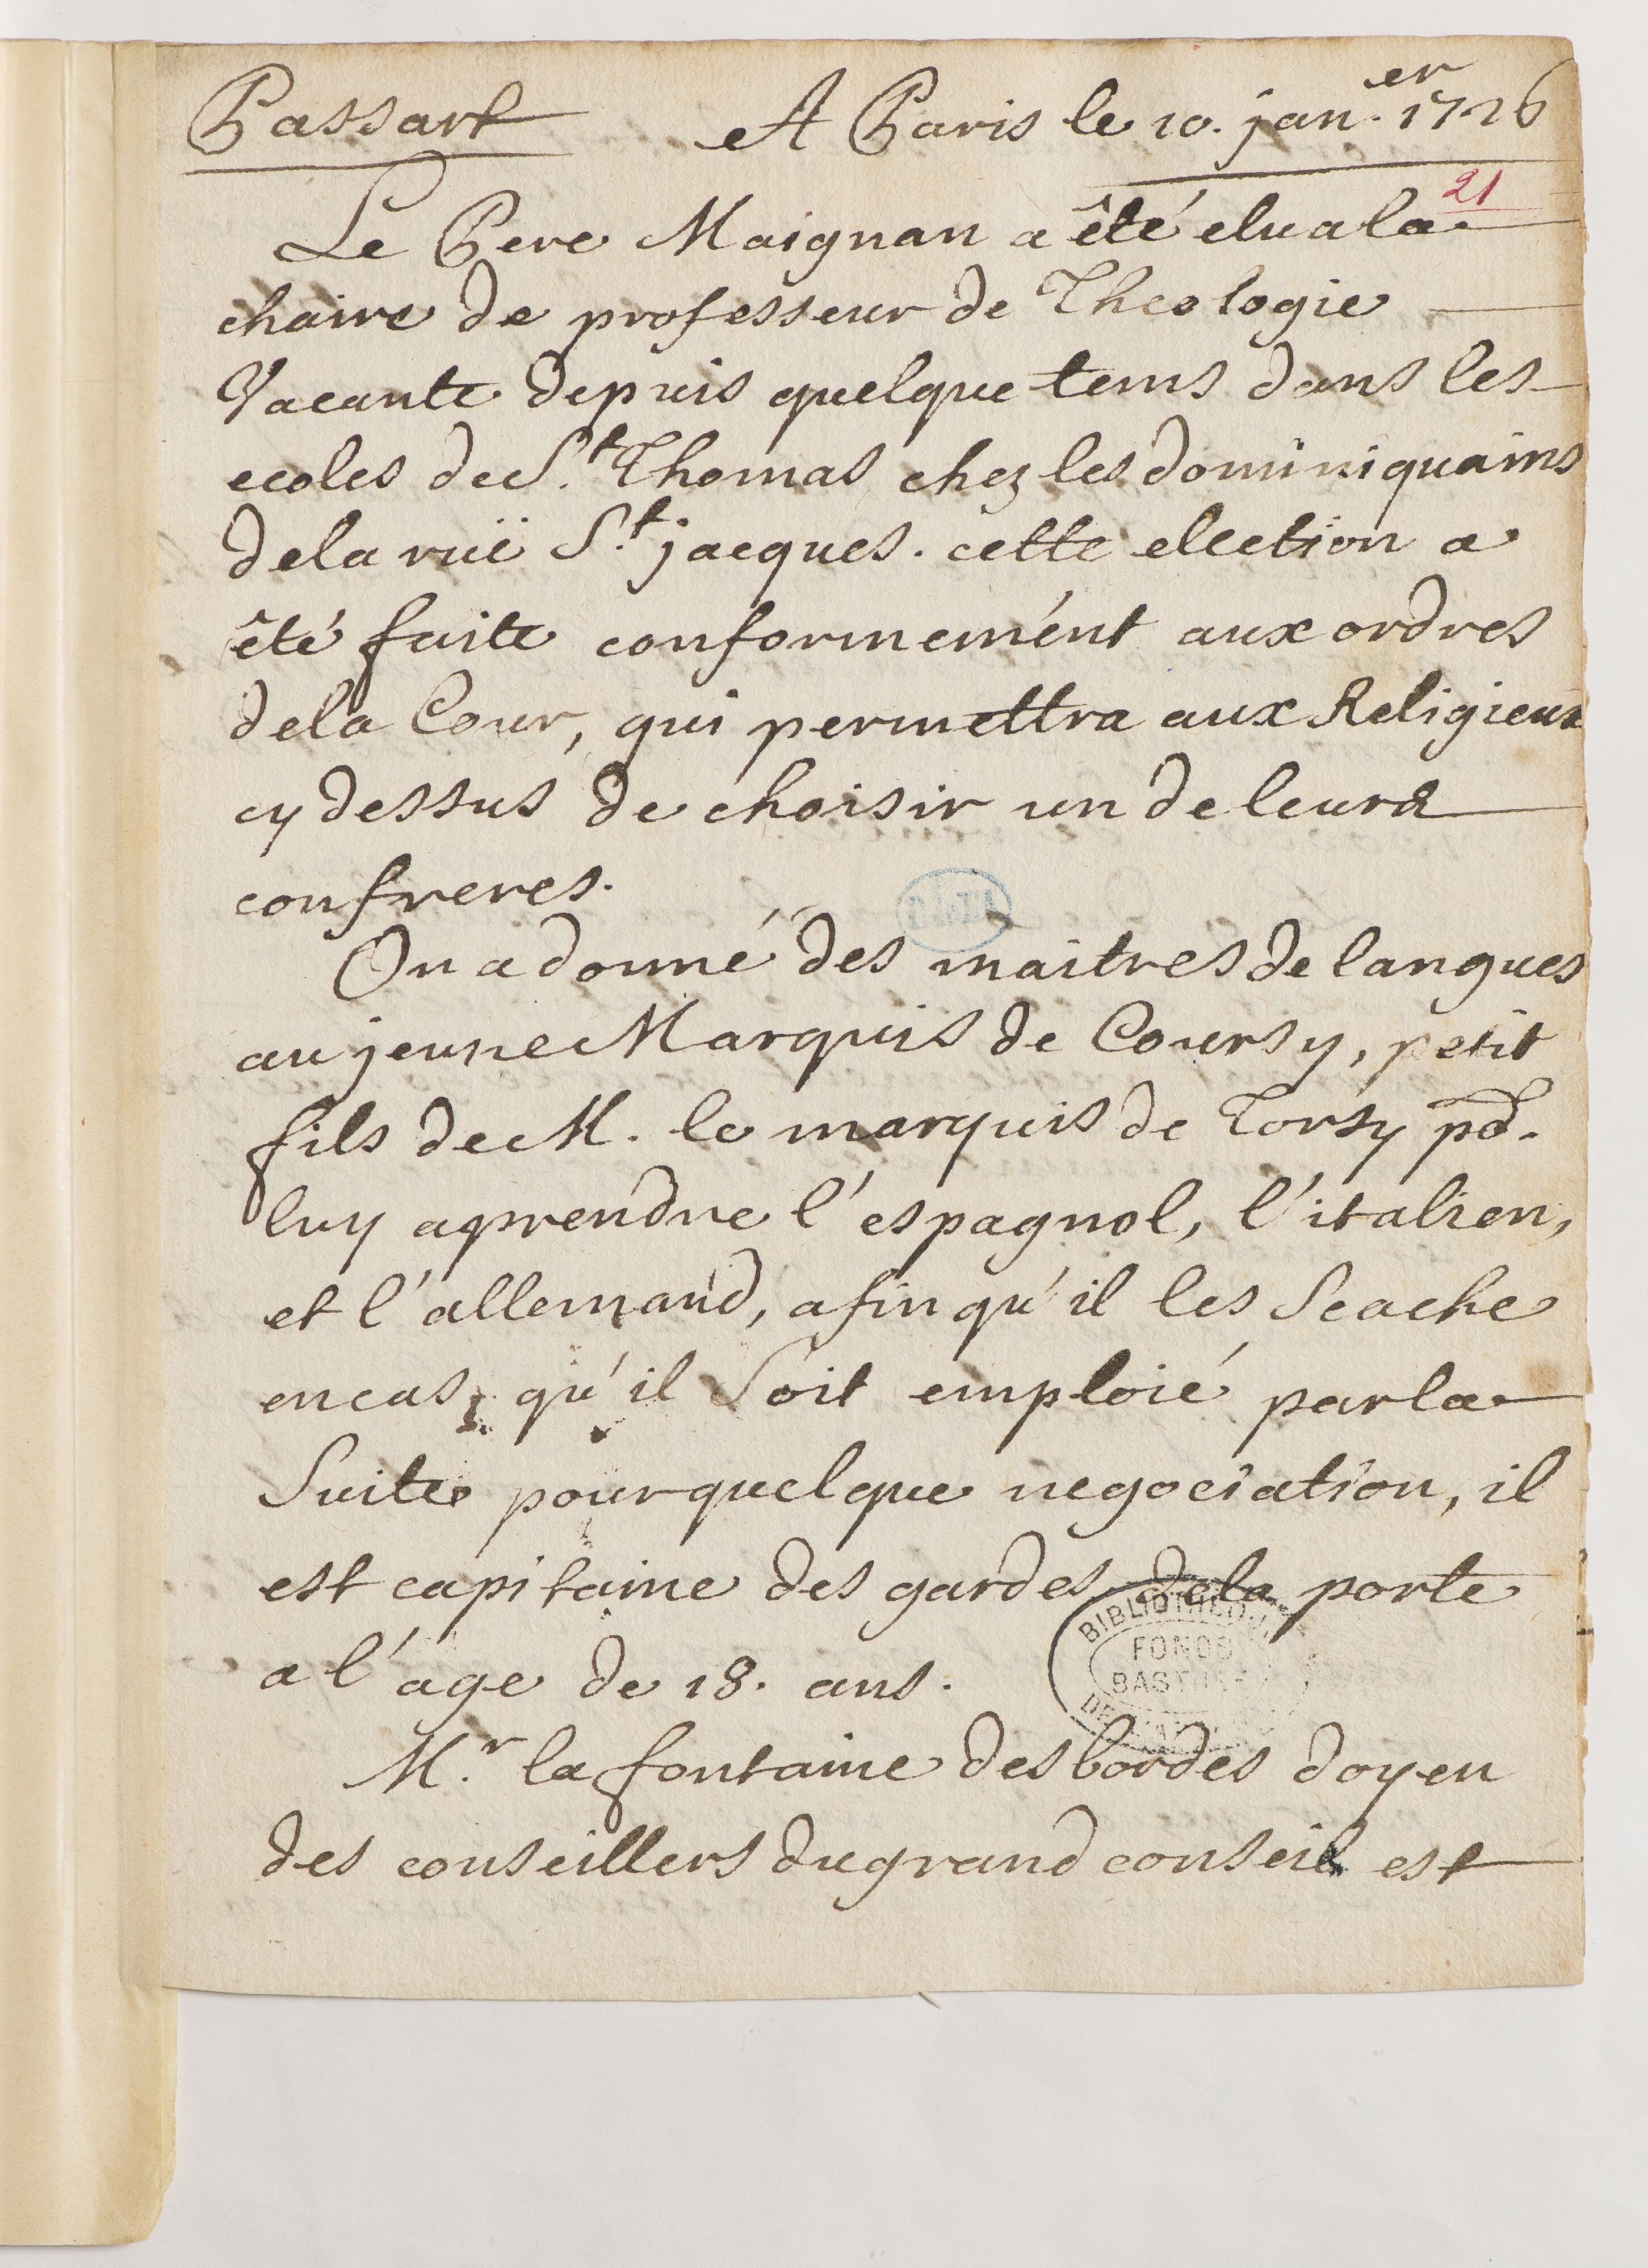 Passart A Paris le 10. jan.er 1726
21
Le Pere Maignan a êté elu a la
chaire de professeur de Theologie
Vacante depuis quelque tems dans les
ecoles de S.t Thomas chez les dominiquains
de la ruë S.t jacques. cette election a
êté faite conformemént aux ordres
de la Cour, qui permettra aux Religieux
cy dessus de choisir un de leurs
confreres.
On a donné des maitres de langues
au jeune Marquis de Coursy, petit
fils de M. le marquis de Torsy pd.
luy aprendre l'espagnol, l'italien,
et l'allemand, afin qu'il les Scache
en cas qu'il Soit emploié par la
Suite pour quelque negociation, il
est capitaine des gardes de la porte
a l'age de 18. ans.
M.r la fontaine desbordes doyen
des conseillers du grand conseil est
BIBLIOTHEQUE
FONDS
BASTILLE
DE L'ARSENAL